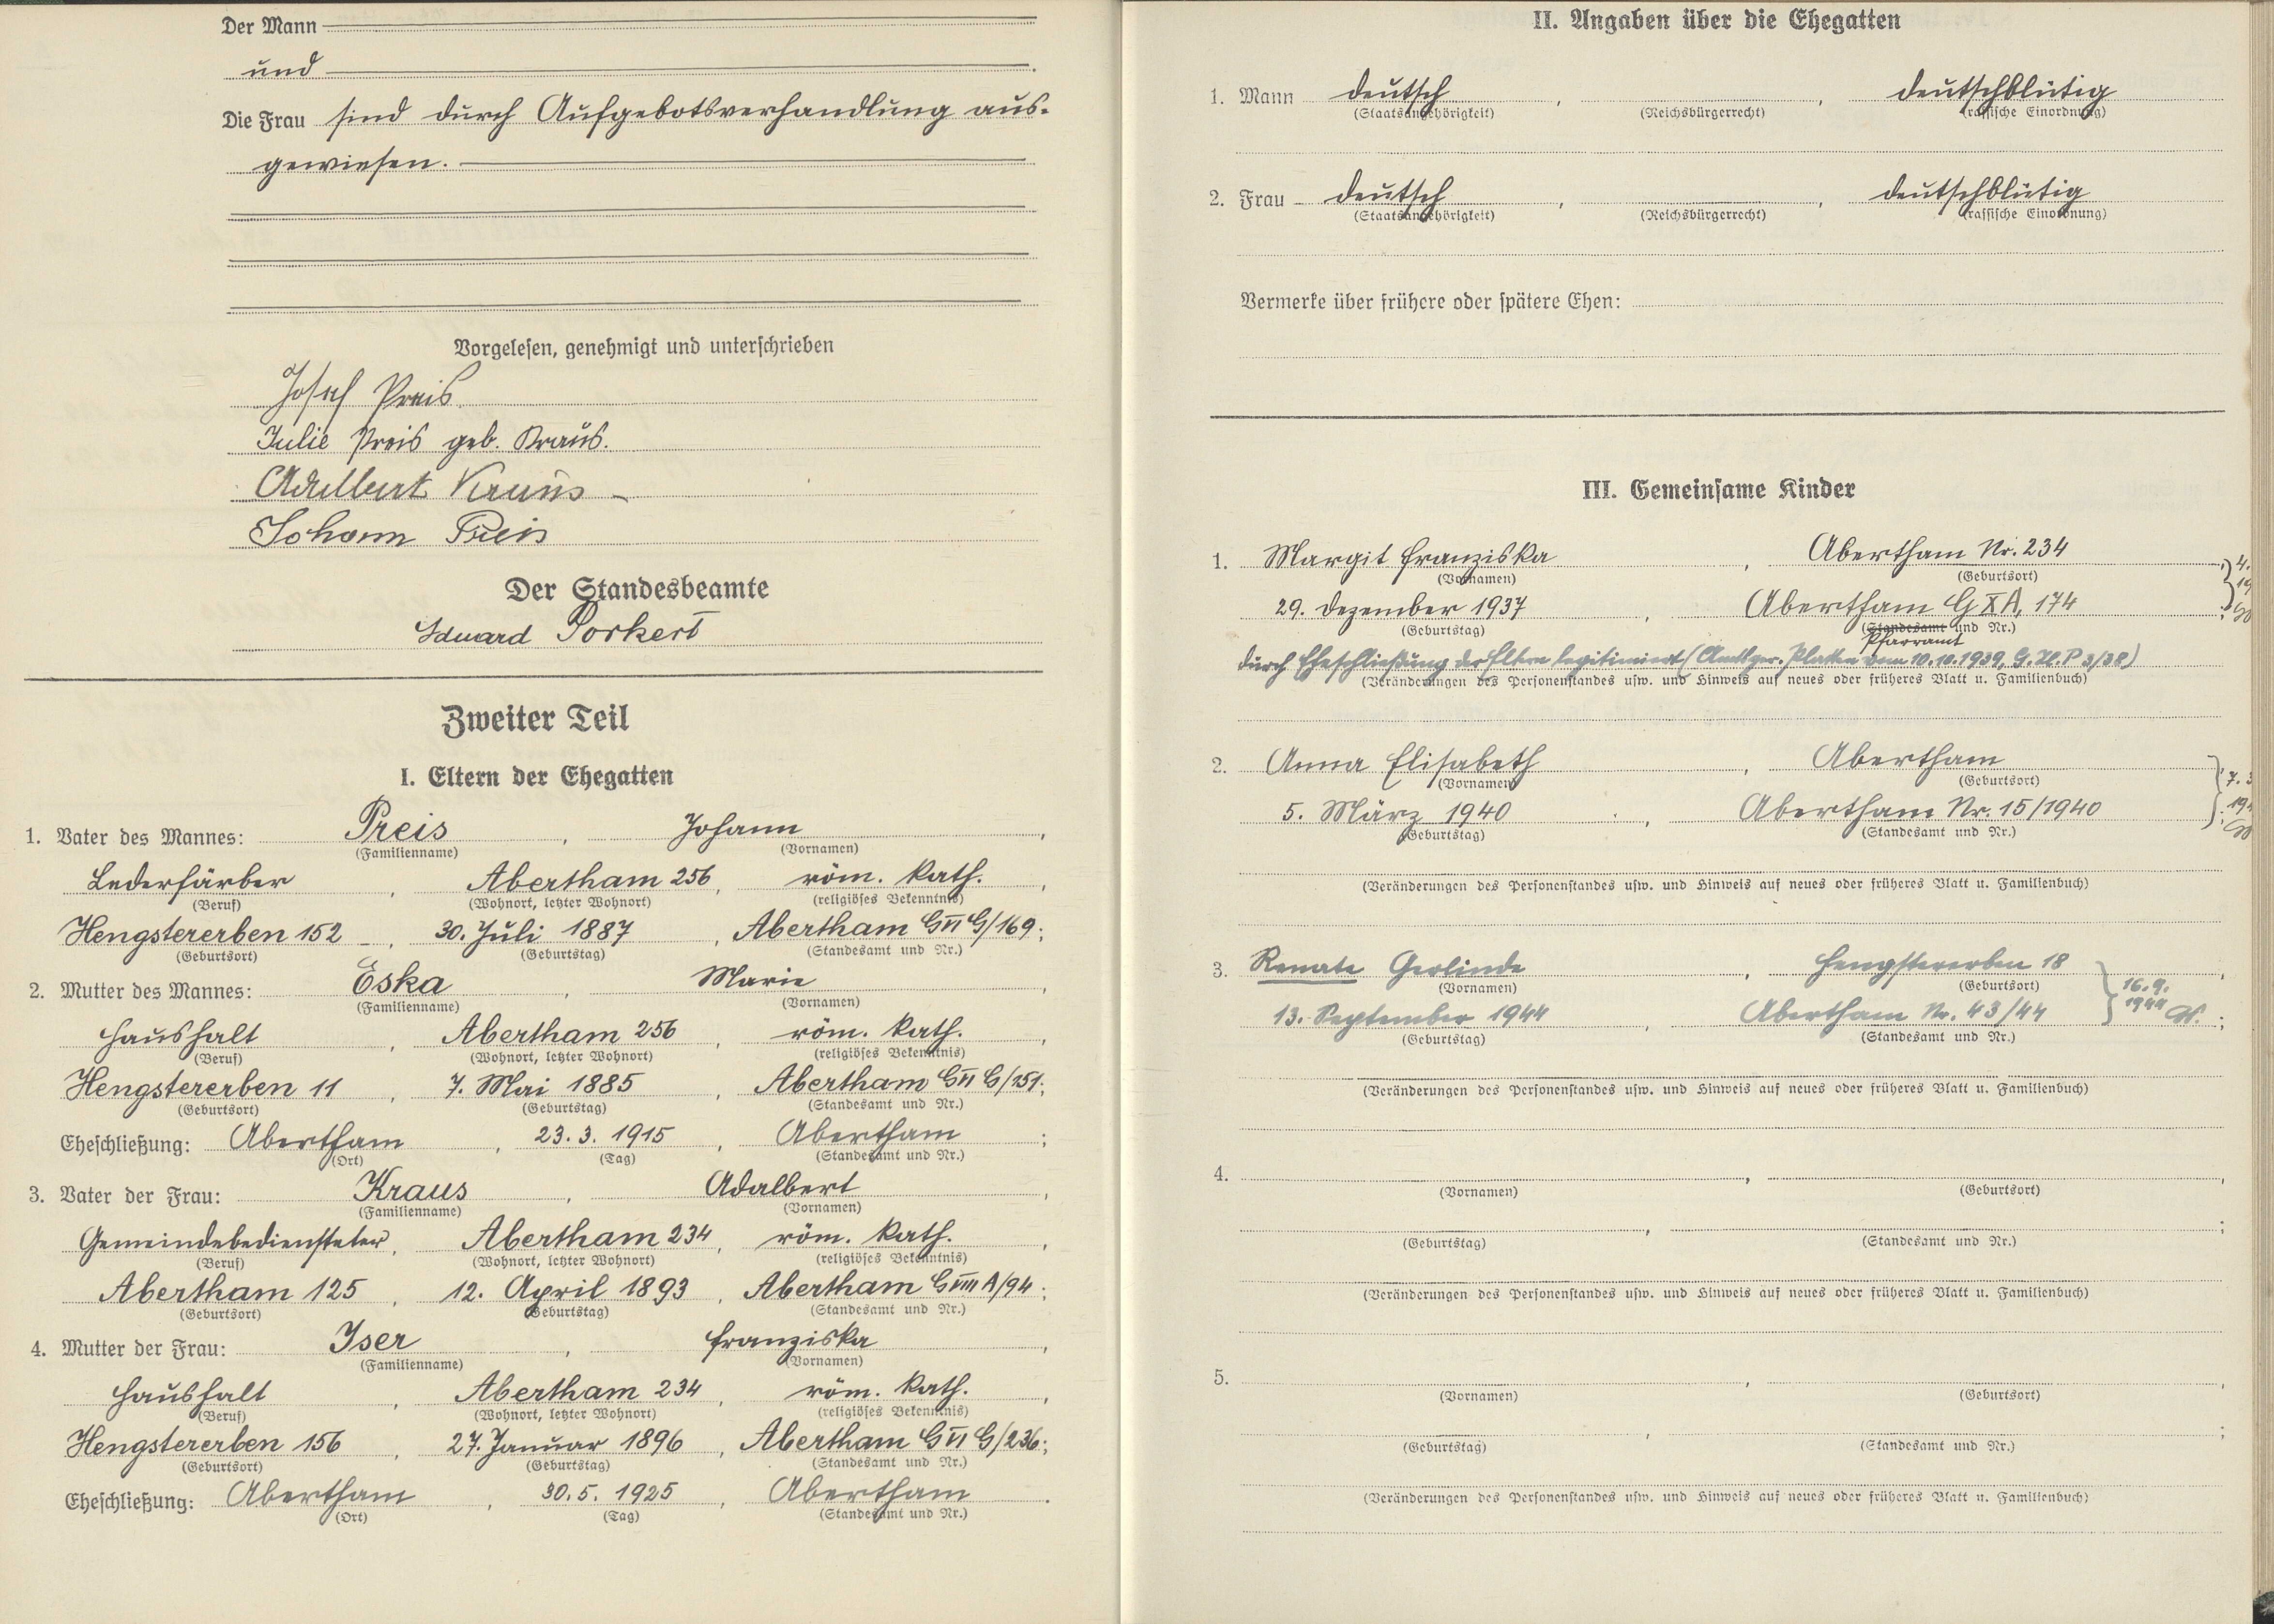 Der Mann
und
Die Frau sind durch Aufgebotsverhandlung aus-
gewiesen.
Vorgelesen, genehmigt und unterschrieben
Josef Preis
Julie Preis geb. Kraus.
Adalbert Kraus
Johann Preis
Der Standesbeamte
Eduard Porkert
Zweiter Teil
I. Eltern der Ehegatten
1. Vater des Mannes: Preis, Johann,
(Familienname) (Vornamen)
Lederfärber, Abertham 256, röm. kath.,
(Beruf) (Wohnort, letzter Wohnort) (religiöses Bekenntnis)
Hengstererben 152, 30. Juli 1887, Abertham G VI G/169;
(Geburtsort) (Geburtstag) (Standesamt und Nr.)
2. Mutter des Mannes: Eska, Marie,
(Familienname) (Vornamen)
Haushalt, Abertham 256, röm. kath.,
(Beruf) (Wohnort, letzter Wohnort) (religiöses Bekenntnis)
Hengstererben 11, 7. Mai 1885, Abertham G VI G/151;
(Geburtsort) (Geburtstag) (Standesamt und Nr.)
Eheschließung: Abertham, 23. 3. 1915, Abertham;
(Ort) (Tag) (Standesamt und Nr.)
3. Vater der Frau: Kraus, Adalbert,
(Familienname) (Vornamen)
Gemeindebediensteter, Abertham 234, röm. kath.,
(Beruf) (Wohnort, letzter Wohnort) (religiöses Bekenntnis)
Abertham 125, 12. April 1893, Abertham G VIII A/94;
(Geburtsort) (Geburtstag) (Standesamt und Nr.)
4. Mutter der Frau: Iser, Franziska,
(Familienname) (Vornamen)
Haushalt, Abertham 234, röm. kath.,
(Beruf) (Wohnort, letzter Wohnort) (religiöses Bekenntnis)
Hengstererben 156, 27. Januar 1896, Abertham G VI G/236;
(Geburtsort) (Geburtstag) (Standesamt und Nr.)
Eheschließung: Abertham, 30. 5. 1925, Abertham.
(Ort) (Tag) (Standesamt und Nr.)
II. Angaben über die Ehegatten
1. Mann deutsch, , deutschblütig
(Staatsangehörigkeit) (Reichsbürgerrecht) (rassische Einordnung)
2. Frau deutsch, , deutschblütig
(Staatsangehörigkeit) (Reichsbürgerrecht) (rassische Einordnung)
Vermerke über frühere oder spätere Ehen:
III. Gemeinsame Kinder
1. Margit Franziska, Abertham Nr. 234,
(Vornamen) (Geburtsort)
29. Dezember 1937, Abertham G X A, 174;
(Geburtstag) (Standesamt und Nr.)
Pfarramt
durch Eheschließung der Eltern legitimiert (Amtsger. Platten vom 10.10.1939, G. Zl. P 3/38)
(Veränderungen des Personenstandes usw. und Hinweis auf neues oder früheres Blatt u. Familienbuch)
2. Anna Elisabeth, Abertham
(Vornamen) (Geburtsort)
5. März 1940, Abertham Nr. 15/1940
(Geburtstag) (Standesamt und Nr.)
(Veränderungen des Personenstandes usw. und Hinweis auf neues oder früheres Blatt u. Familienbuch)
3. Renate Gerlinde, Hengstererben 18,
(Vornamen) (Geburtsort)
16. 9.
13. September 1944, Abertham Nr. 43/44 1944;
(Geburtstag) (Standesamt und Nr.)
(Veränderungen des Personenstandes usw. und Hinweis auf neues oder früheres Blatt u. Familienbuch)
4. , ,
(Vornamen) (Geburtsort)
, ;
(Geburtstag) (Standesamt und Nr.)
(Veränderungen des Personenstandes usw. und Hinweis auf neues oder früheres Blatt u. Familienbuch)
5. , ,
(Vornamen) (Geburtsort)
, ;
(Geburtstag) (Standesamt und Nr.)
(Veränderungen des Personenstandes usw. und Hinweis auf neues oder früheres Blatt u. Familienbuch)